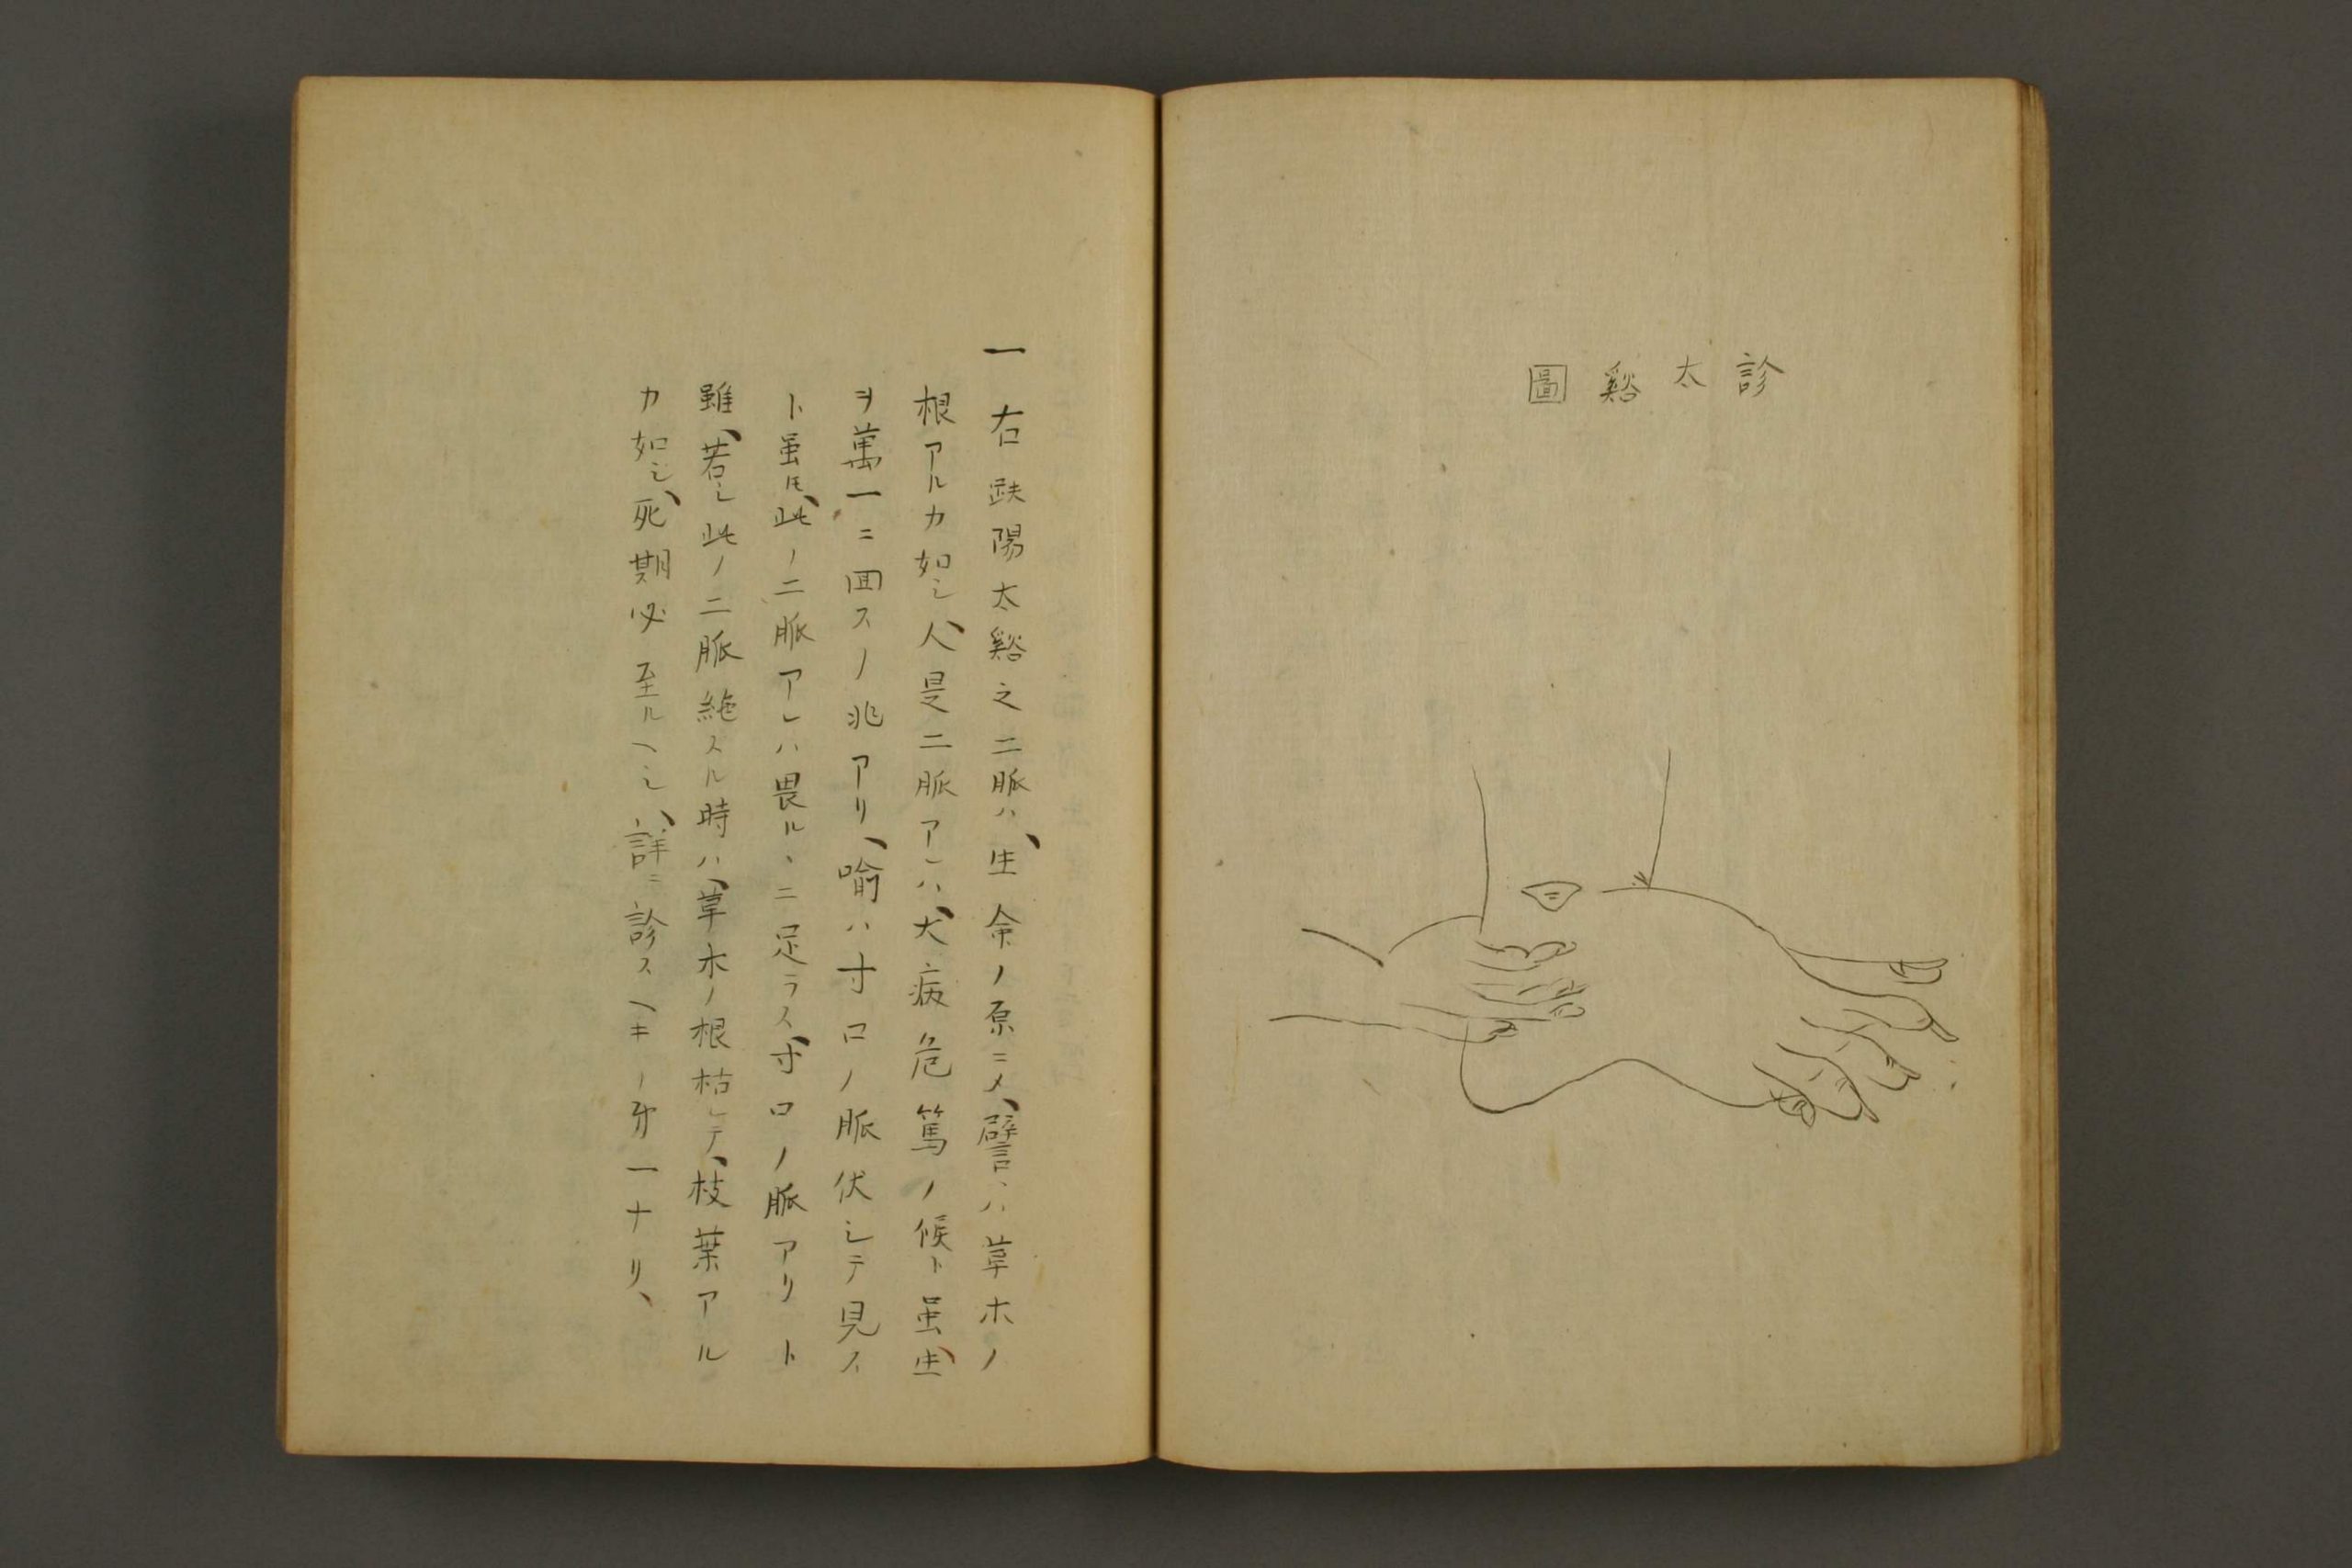 診太谿圖
一右趺陽太谿之二脈ハ、生命ノ原ニ〆、譬ハ草木ノ
根アルカ如シ、人是二脈アレハ、大病危篤ノ候ト虽、生
ヲ萬一ニ囬スノ兆アリ、喻ハ寸口ノ脈伏シテ見ス
ト虽𪜈、此ノ二脈アレハ畏ルヽニ足ラス、寸口ノ脈アリト
雖、若シ此ノ二脈絶スル時ハ、草木ノ根枯レテ、枝葉アル
カ如シ、死期必至ルヘシ、詳ニ診スヘキノ㐧一ナリ、